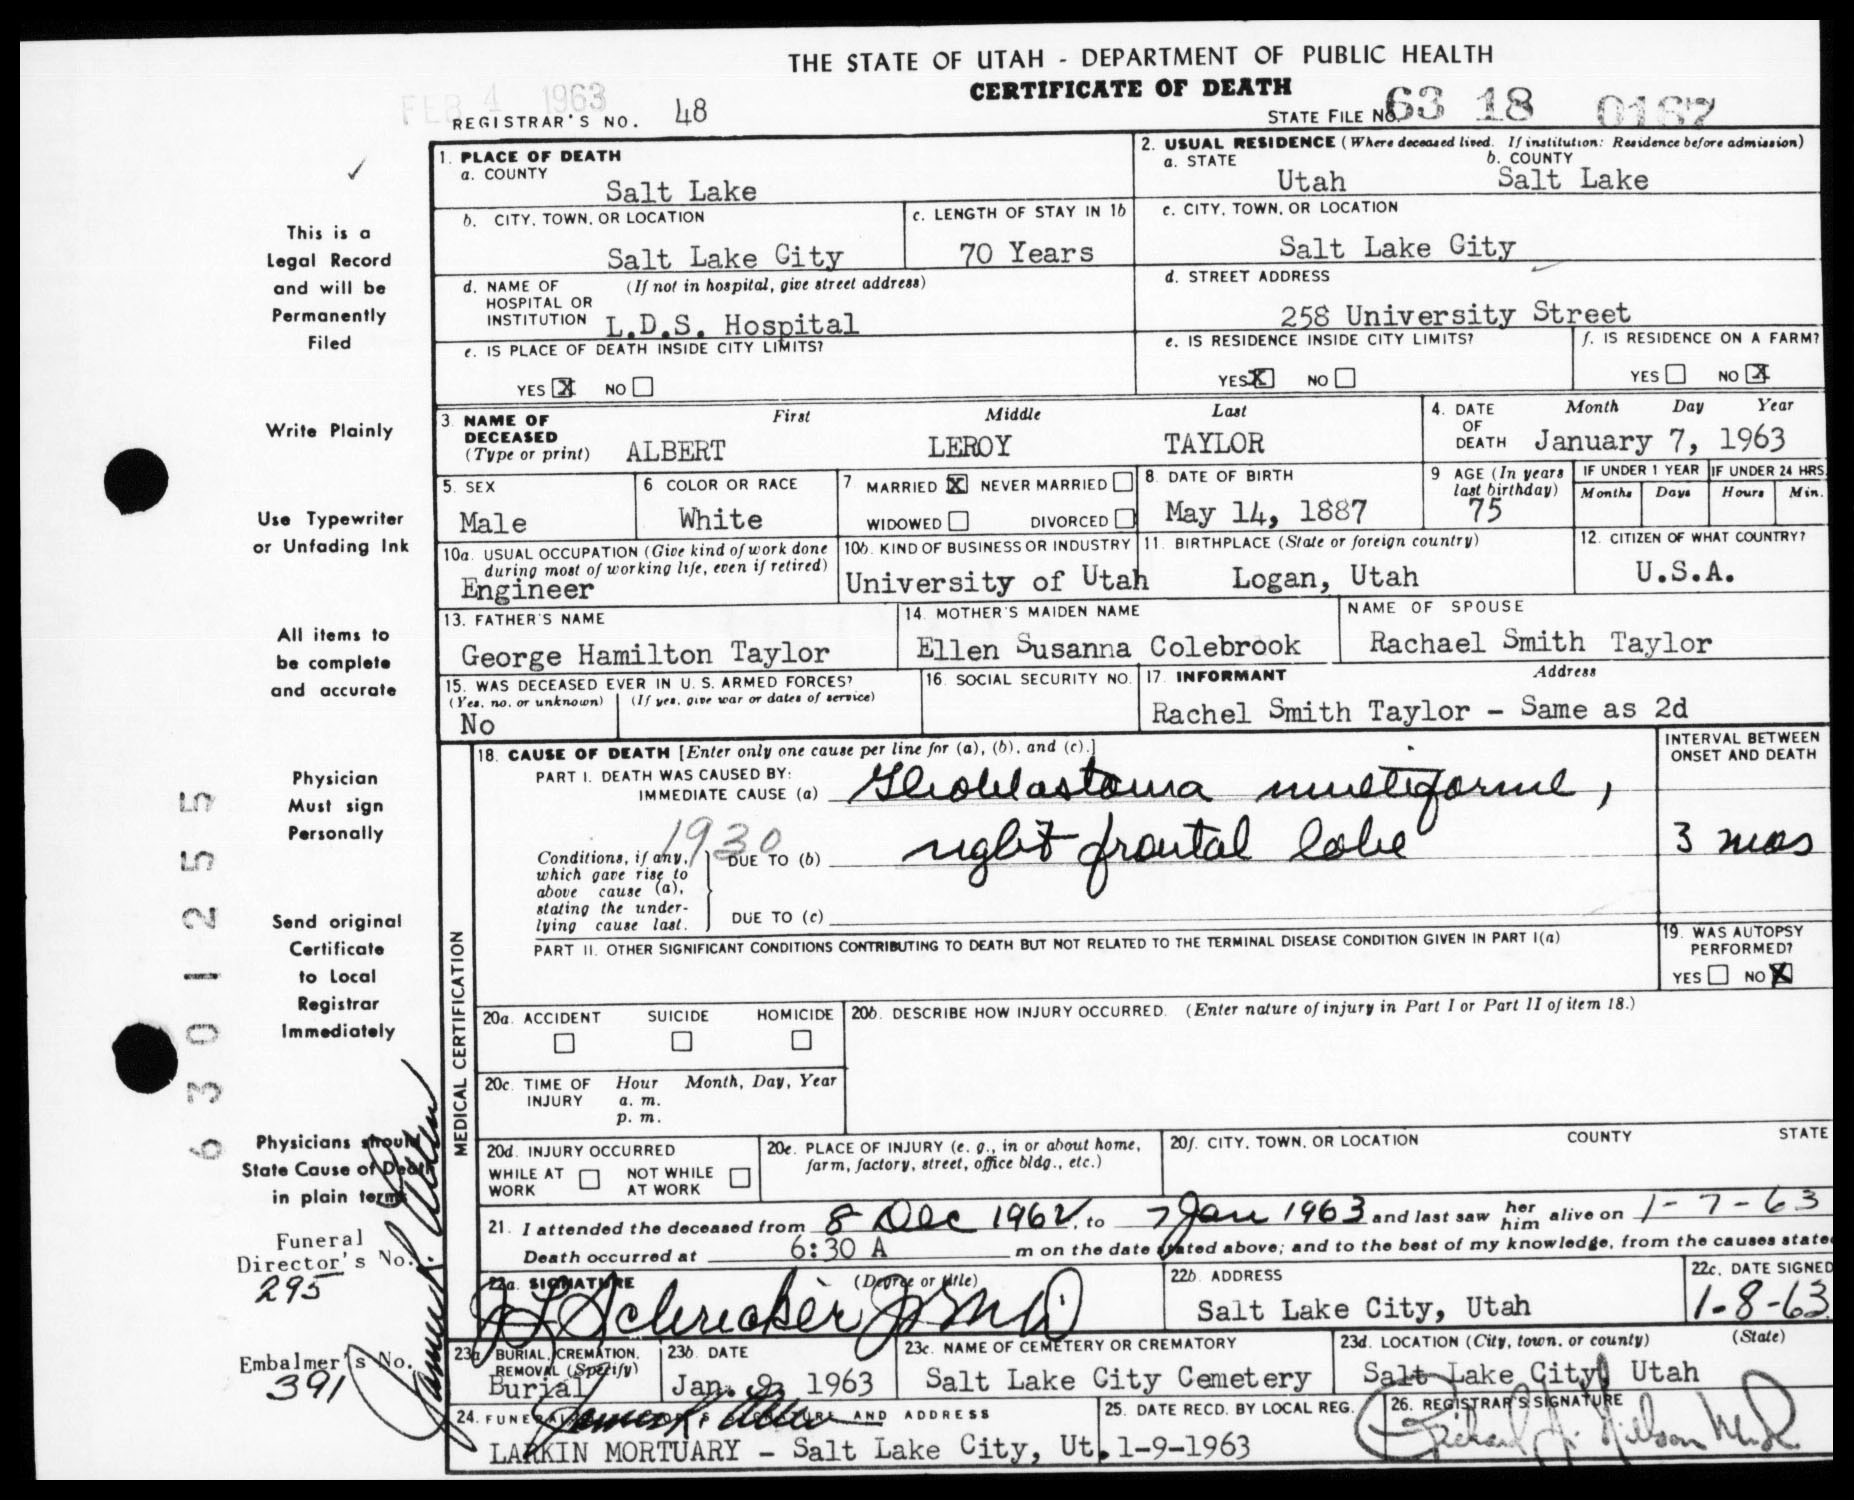 THE STATE OF UTAH - DEPARTMENT OF PUBLIC HEALTH
CERTIFICATE OF DEATH
FEB 4 1963
REGISTRAR'S NO. 48
STATE FILE NO. 63 18 0187
1. PLACE OF DEATH
a. COUNTY
Salt Lake
2. USUAL RESIDENCE (Where deceased lived. If institution: Residence before admission)
a. STATE b. COUNTY
Utah Salt Lake
b. CITY, TOWN, OR LOCATION
Salt Lake City
c. LENGTH OF STAY IN 1b
70 Years
c. CITY, TOWN, OR LOCATION
Salt Lake City
d. NAME OF HOSPITAL OR INSTITUTION (If not in hospital, give street address)
L.D.S. Hospital
d. STREET ADDRESS
258 University Street
e. IS PLACE OF DEATH INSIDE CITY LIMITS?
YES X NO
e. IS RESIDENCE INSIDE CITY LIMITS?
YES X NO
f. IS RESIDENCE ON A FARM?
YES NO X
3. NAME OF DECEASED (Type or print)
First Middle Last
ALBERT LEROY TAYLOR
4. DATE OF DEATH Month Day Year
January 7, 1963
5. SEX
Male
6 COLOR OR RACE
White
7 MARRIED X NEVER MARRIED
WIDOWED DIVORCED
8. DATE OF BIRTH
May 14, 1887
9 AGE (In years last birthday)
75
IF UNDER 1 YEAR
Months Days
IF UNDER 24 HRS.
Hours Min.
10a. USUAL OCCUPATION (Give kind of work done during most of working life, even if retired)
Engineer
10b. KIND OF BUSINESS OR INDUSTRY
University of Utah
11. BIRTHPLACE (State or foreign country)
Logan, Utah
12. CITIZEN OF WHAT COUNTRY?
U.S.A.
13. FATHER'S NAME
George Hamilton Taylor
14. MOTHER'S MAIDEN NAME
Ellen Susanna Colebrook
NAME OF SPOUSE
Rachael Smith Taylor
15. WAS DECEASED EVER IN U.S. ARMED FORCES?
(Yes, no, or unknown) (If yes, give war or dates of service)
No
16. SOCIAL SECURITY NO.
17. INFORMANT Address
Rachel Smith Taylor - Same as 2d
MEDICAL CERTIFICATION
18. CAUSE OF DEATH [Enter only one cause per line for (a), (b), and (c).]
PART I. DEATH WAS CAUSED BY:
IMMEDIATE CAUSE (a) Glioblastoma multiforme,
1930
Conditions, if any, which gave rise to above cause (a), stating the underlying cause last.
DUE TO (b) right frontal lobe
DUE TO (c)
INTERVAL BETWEEN ONSET AND DEATH
3 mos
PART II. OTHER SIGNIFICANT CONDITIONS CONTRIBUTING TO DEATH BUT NOT RELATED TO THE TERMINAL DISEASE CONDITION GIVEN IN PART I(a)
19. WAS AUTOPSY PERFORMED?
YES NO X
20a. ACCIDENT SUICIDE HOMICIDE
20b. DESCRIBE HOW INJURY OCCURRED. (Enter nature of injury in Part I or Part II of item 18.)
20c. TIME OF INJURY Hour Month, Day, Year
a. m.
p. m.
20d. INJURY OCCURRED
WHILE AT WORK NOT WHILE AT WORK
20e. PLACE OF INJURY (e. g., in or about home, farm, factory, street, office bldg., etc.)
20f. CITY, TOWN, OR LOCATION COUNTY STATE
21. I attended the deceased from 8 Dec 1962, to 7 Jan 1963 and last saw her him alive on 1-7-63
Death occurred at 6:30 A m on the date stated above; and to the best of my knowledge, from the causes stated
22a. SIGNATURE (Degree or title)
Schricker Jr MD
22b. ADDRESS
Salt Lake City, Utah
22c. DATE SIGNED
1-8-63
23a BURIAL, CREMATION, REMOVAL (Specify)
Burial
23b. DATE
Jan. 9, 1963
23c. NAME OF CEMETERY OR CREMATORY
Salt Lake City Cemetery
23d. LOCATION (City, town, or county) (State)
Salt Lake City, Utah
24. FUNERAL DIRECTOR'S SIGNATURE AND ADDRESS
LARKIN MORTUARY - Salt Lake City, Ut.
25. DATE RECD. BY LOCAL REG.
1-9-1963
26. REGISTRAR'S SIGNATURE
Richard A. Nilson M.D.
This is a
Legal Record
and will be
Permanently
Filed
Write Plainly
Use Typewriter
or Unfading Ink
All items to
be complete
and accurate
Physician
Must sign
Personally
Send original
Certificate
to Local
Registrar
Immediately
Physicians should
State Cause of Death
in plain terms
Funeral
Director's No.
295
Embalmer's No.
391
63012555